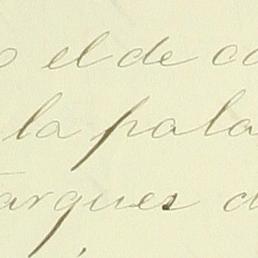 o el de co
la pala
arques d